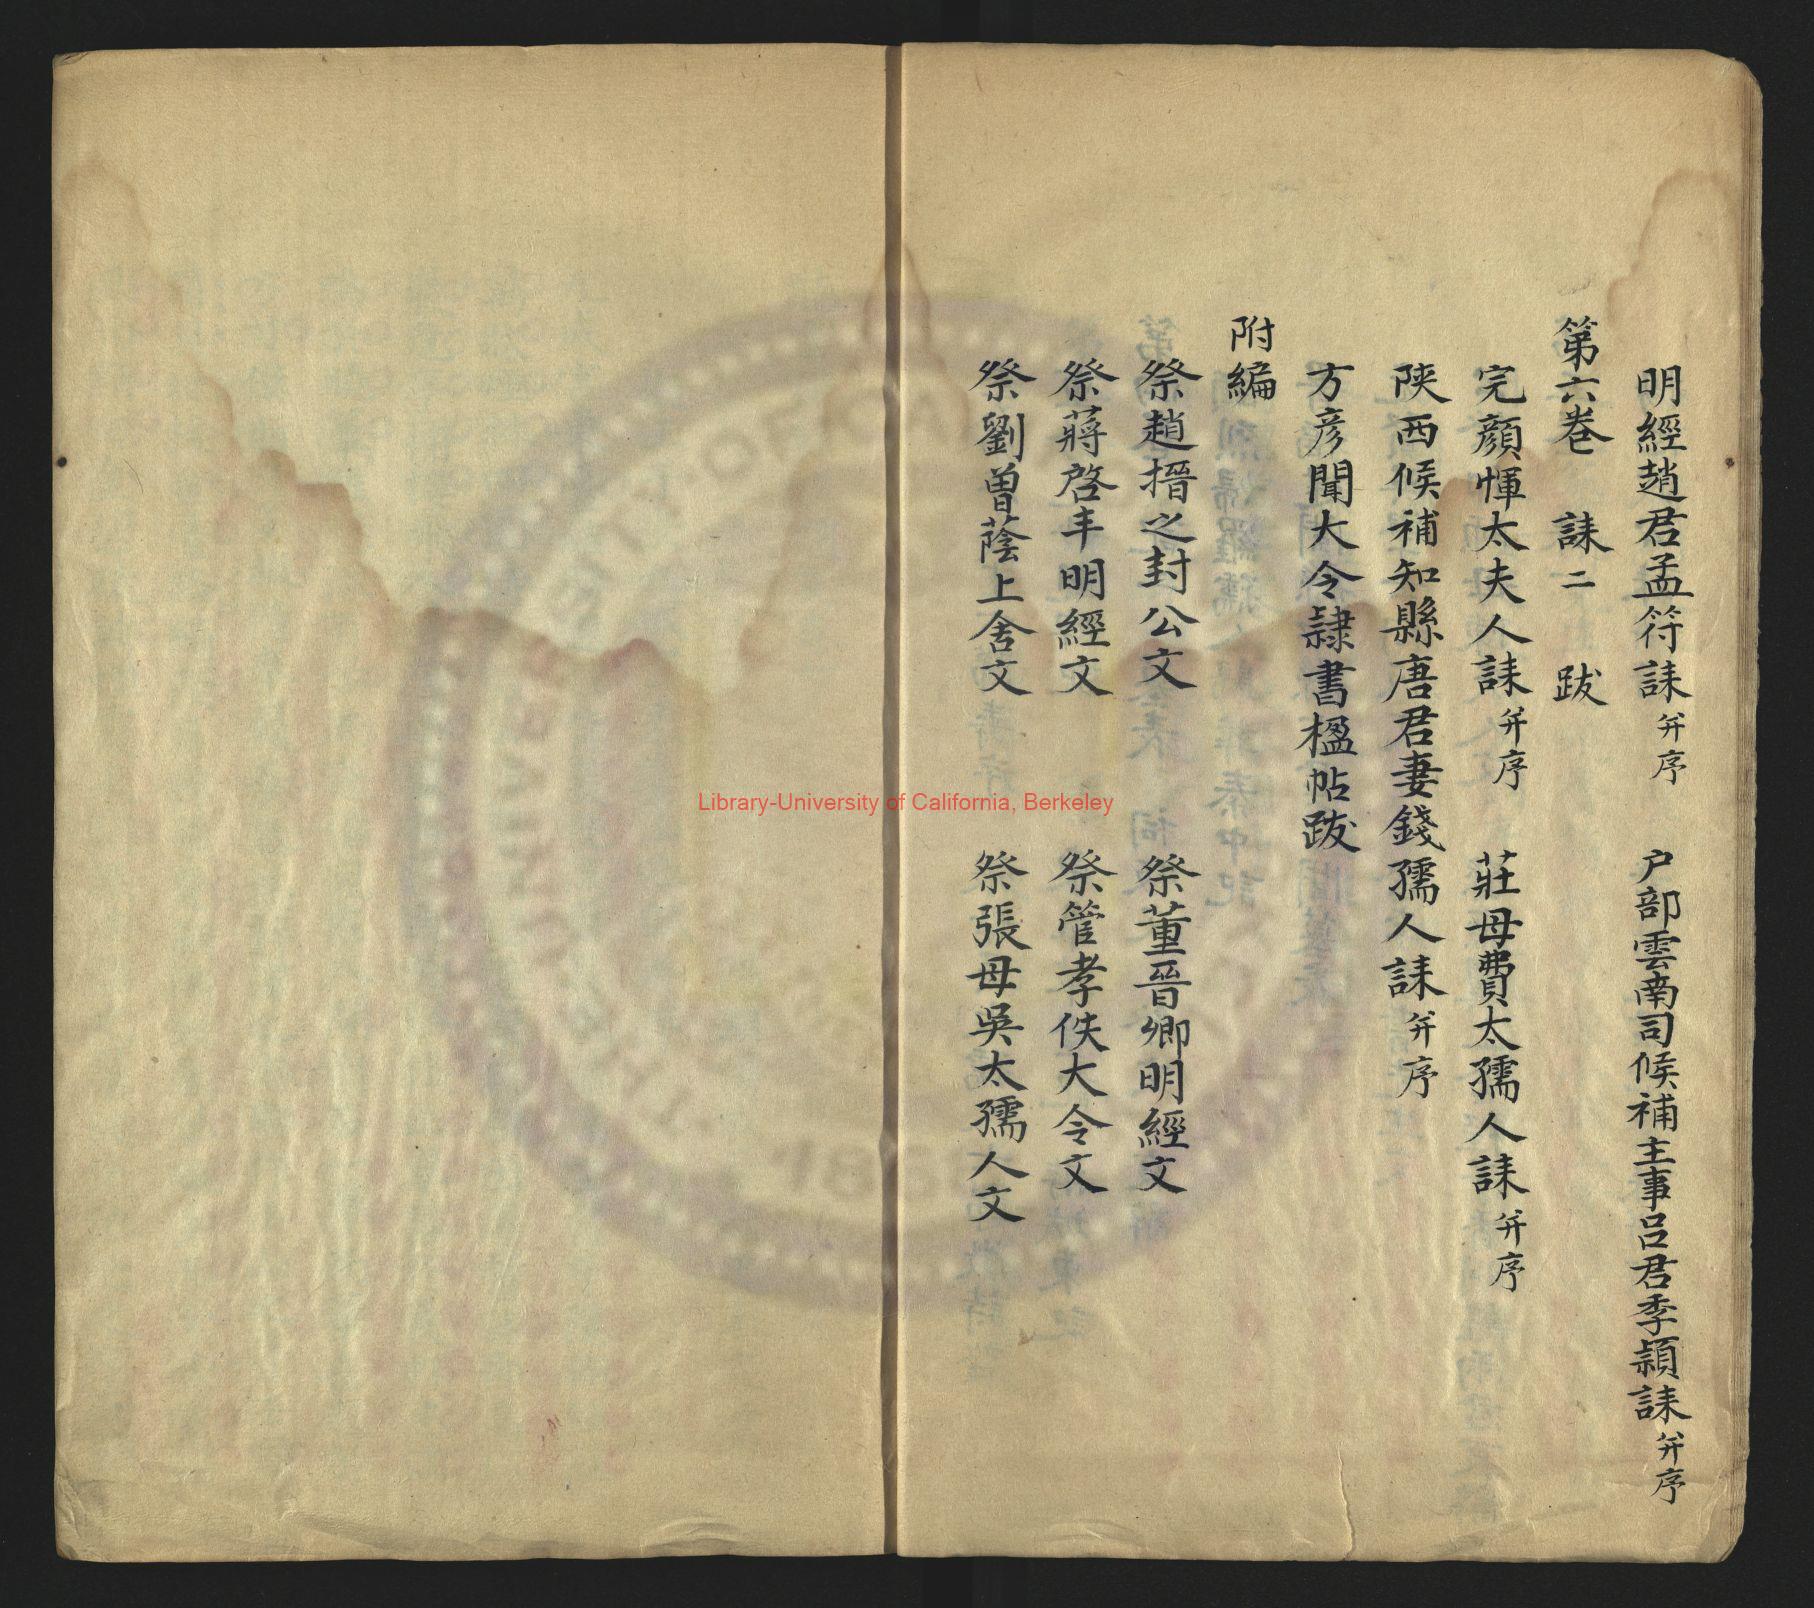 明經趙君孟符誄并序　戶部雲南司候補主事呂君季穎誄并序
第六卷　誄二　跋
完顏惲太夫人誄并序　莊母費太孺人誄并序
陝西候補知縣唐君妻錢孺人誄并序
方彥聞大令隸書楹帖跋
附編
祭趙搢之封公文　祭董晉卿明經文
祭蔣啓丰明經文　祭管孝佚大令文
祭劉曾蔭上舍文　祭張母吳太孺人文
Library-University of California, Berkeley